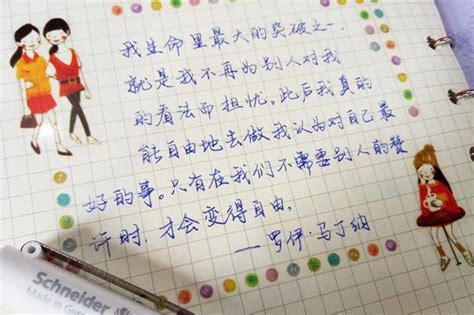 我生命里最大的突破之一,
就是我不再为别人对我
的看法而担忧。此后我真的
能自由地去做我认为对自己最
好的事。只有在我们不需要别人的赞
许时,才会变得自由。
—罗伊·马丁纳
Schneider
Made in Ger